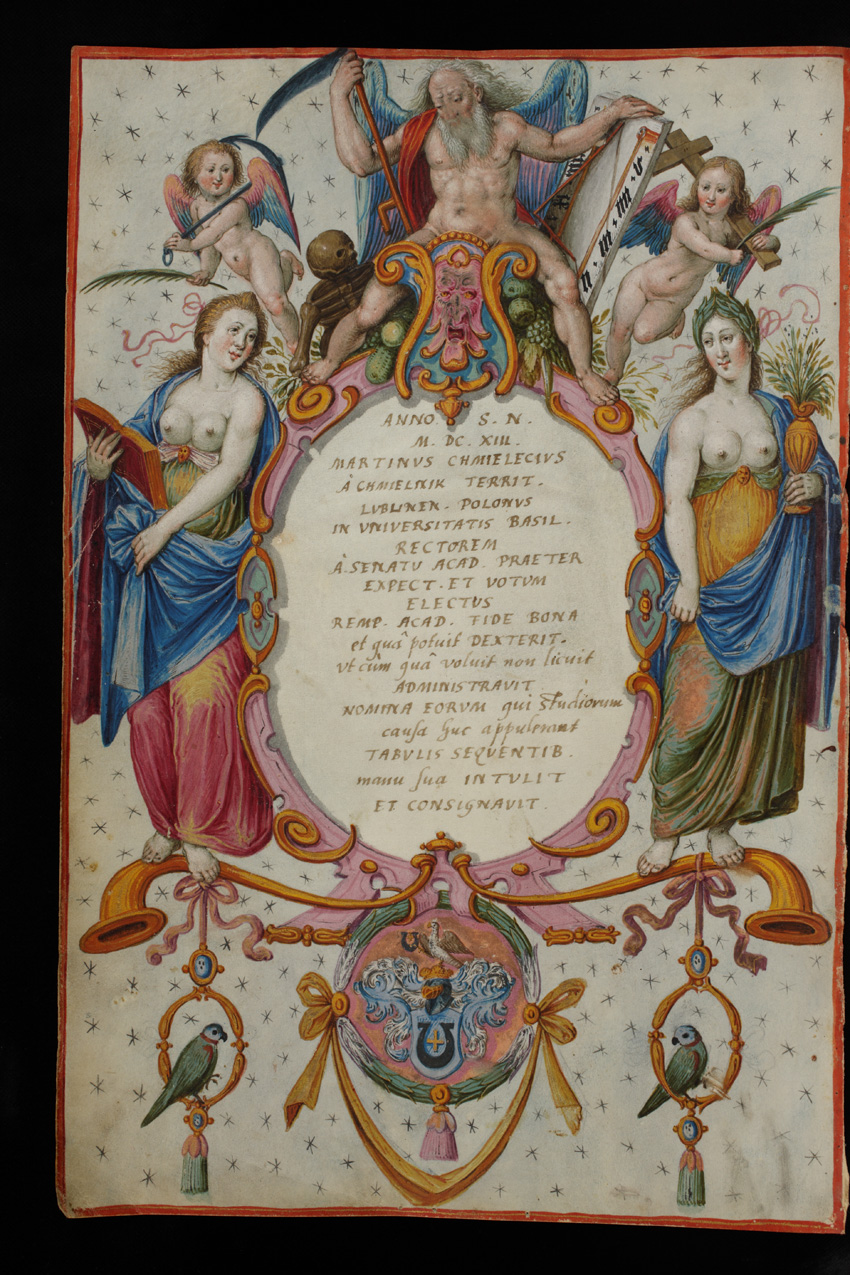 ANNO. S. N.
M. DC. XIII.
MARTINVS CHMIELECIVS
À CHMIELNIK TERRIT.
LVBLINEN. POLONVS
IN VNIVERSITATIS BASIL.
RECTOREM
À SENATV ACAD. PRAETER
EXPECT. ET VOTVM
ELECTVS
REMP. ACAD. FIDE BONA
et quâ potuit DEXTERIT.
vt cùm quâ voluit non licuit
ADMINISTRAVIT
NOMINA EORVM qui Studiorum
causa huc appulerant
TABVLIS SEQVENTIB.
manu sua INTVLIT
ET CONSIGNAVIT.